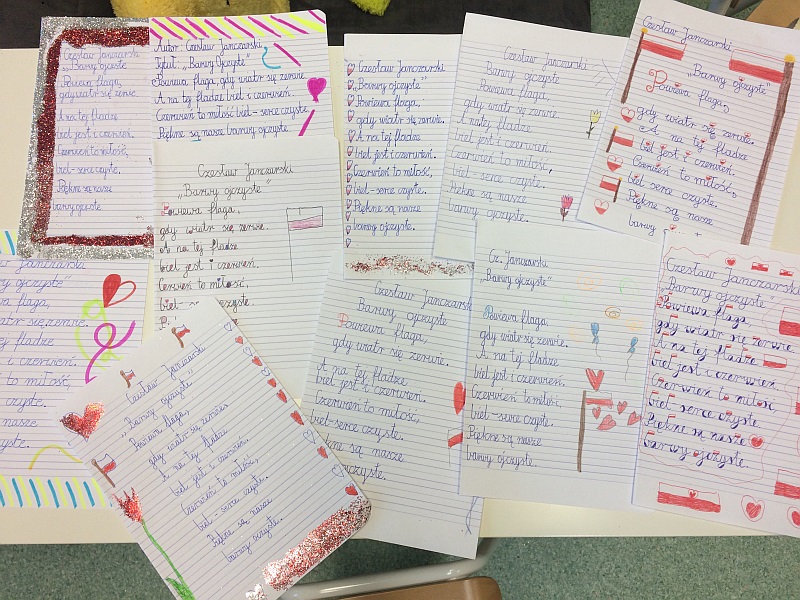 Czesław Janczarski
„Barwy Ojczyste
Powiewa flaga,
gdy wiatr się zerwie.
A na tej fladze
biel jest i czerwień.
Czerwień to miłość,
biel-serce czyste.
Piękne są nasze
barwy ojczyste.
Autor: Czesław Janczarski
Tytuł: „Barwy Ojczyste"
Powiewa flaga, gdy wiatr się zerwie.
A na tej fladze biel i czerwień.
Czerwień to miłość biel-serce czyste
Piękne są nasze barwy ojczyste
Czesław Janczarski
„Barwy ojczyste"
Powiewa flaga.
gdy wiatr się zerwie.
A na tej fladze
biel jest i czerwień.
Czerwień to miłość,
biel-serce czyste.
Piękne są nasze
barwy ojczyste.
Czesław Janczarski
Barwy ojczyste
Powiewa flaga,
gdy wiatr się zerwie.
A na tej fladze
biel jest i czerwień.
Czerwień to miłość,
biel-serce czyste.
Piękne są nasze
barwy ojczyste.
Czesław Janczarski
„Barwy ojczyste"
Powiewa flaga,
gdy wiatr się zerwie.
A na tej fladze
biel jest i czerwień.
Czerwień to miłość,
biel-serce czyste.
Piękne są nasze
barwy
Czesław Janczarski
„Barwy ojczyste"
Powiewa flaga,
gdy wiatr się zerwie.
A na tej fladze
biel jest i czerwień.
Czerwień to miłość,
biel-
czyste.
Janczarski
ojczyste"
flaga,
wiatr się zerwie.
fladze
i czerwień.
to miłość,
czyste.
nasze
Czesław Janczarski
„Barwy ojczyste"
Powiewa flaga,
gdy wiatr się zerwie.
A na tej fladze
biel jest i czerwień.
Czerwień to miłość,
biel-serce czyste.
Piękne są nasze
barwy ojczyste.
Czesław
Barwy ojczyste
Powiewa flaga,
gdy wiatr się zerwie.
A na tej fladze
biel jest i czerwień.
Czerwień to miłość,
biel-serce czyste.
są nasze
ojczyste.
Cz. Janczarski
„Barwy ojczyste"
Powiewa flaga.
gdy wiatr się zerwie.
A na tej fladze
biel jest i czerwień.
Czerwień to miłość.
biel-serce czyste.
Piękne są nasze
barwy ojczyste.
Czesław Janczarski
„Barwy ojczyste"
Powiewa flaga,
gdy wiatr się zerwie.
A na tej fladze
biel jest i czerwień.
Czerwień to miłość,
biel-serce czyste.
Piękne są nasze
barwy ojczyste.